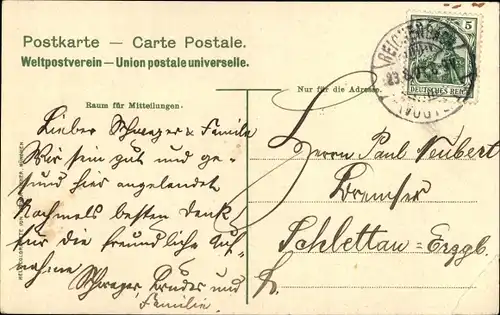 Postkarte — Carte Postale.
Weltpostverein — Union postale universelle.
5
DEUTSCHES REICH
Nur für die Adresse
Raum für Mitteilungen.
Lieber Schwager & Familie
Wir sin gut und ge-
sund hier angelandet
Nachmels besten Dank
für die freundliche Auf-
nahme
Schwager, Bruder und
Familie.
Herrn Paul Neubert
Bremser
Schlettau - Erzgb.